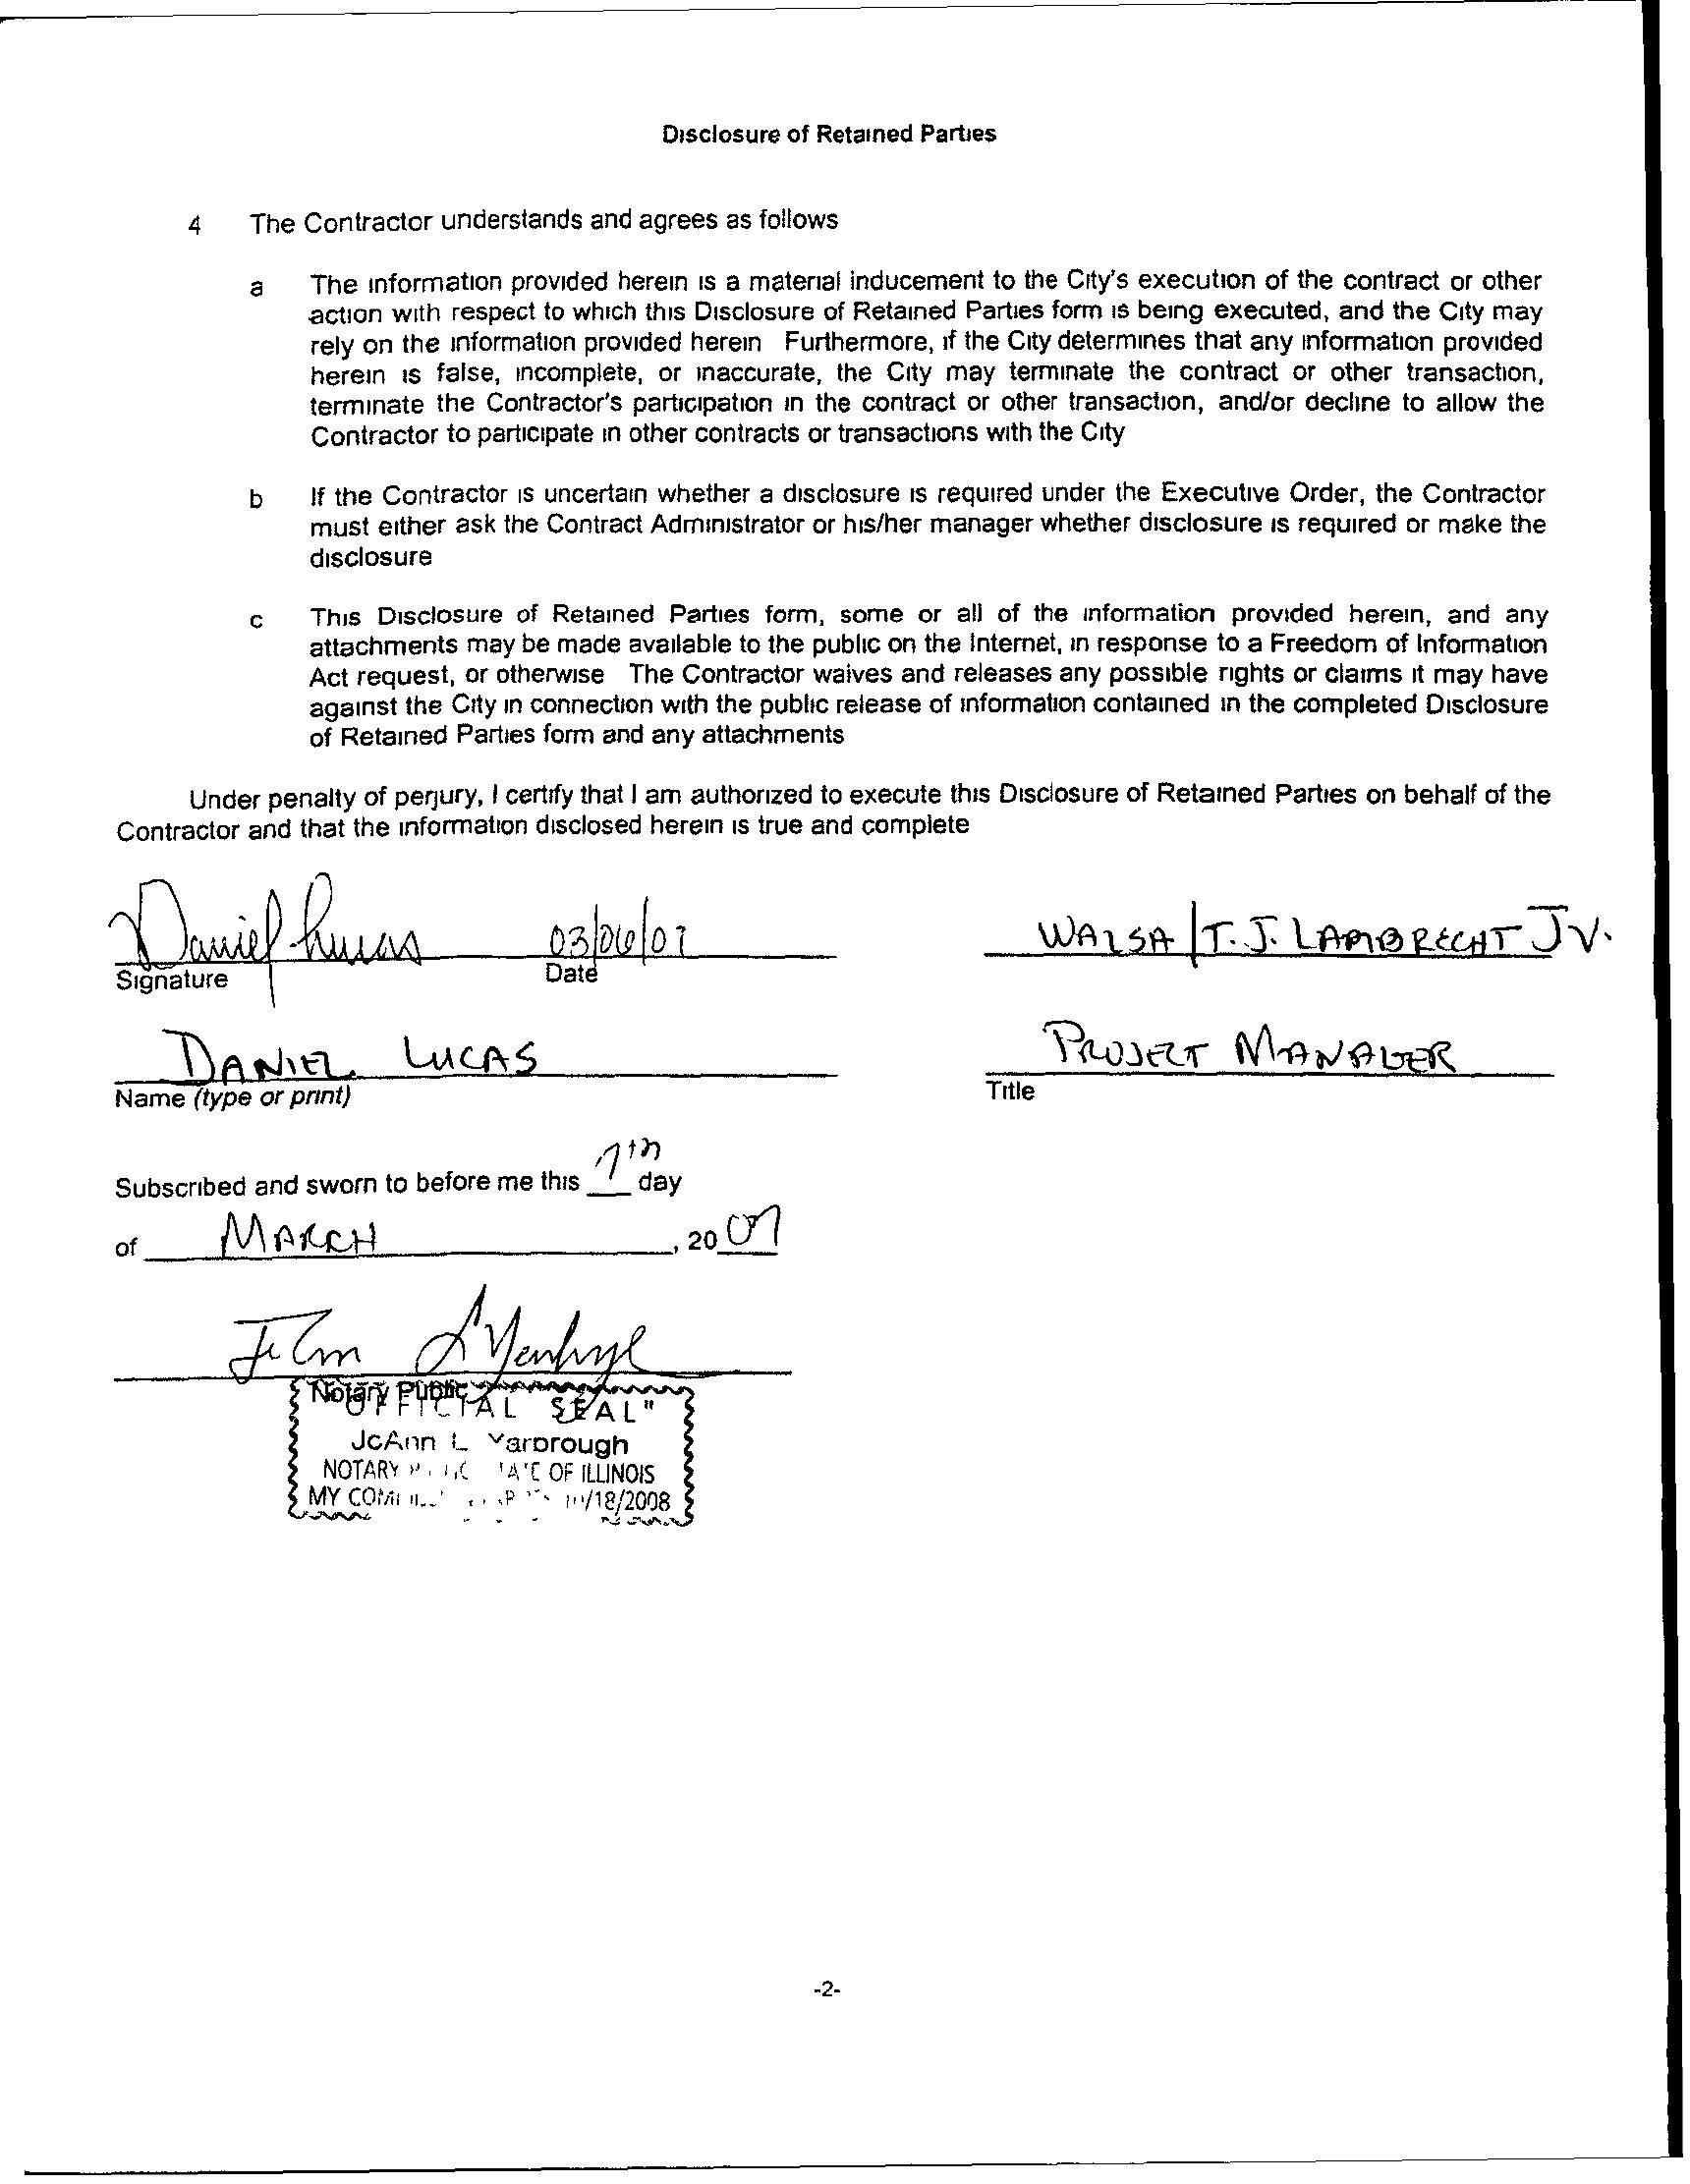 Disclosure of Retained Parties
4 The Contractor understands and agrees as follows
a The information provided herein is a material inducement to the City's execution of the contract or other
action with respect to which this Disclosure of Retained Parties form is being executed, and the City may
rely on the information provided herein Furthermore, if the City determines that any information provided
herein is false, incomplete, or inaccurate, the City may terminate the contract or other transaction,
terminate the Contractor's participation in the contract or other transaction, and/or decline to allow the
Contractor to participate in other contracts or transactions with the City
b If the Contractor is uncertain whether a disclosure is required under the Executive Order, the Contractor
must either ask the Contract Administrator or his/her manager whether disclosure is required or make the
disclosure
c This Disclosure of Retained Parties form, some or all of the information provided herein, and any
attachments may be made available to the public on the Internet, in response to a Freedom of Information
Act request, or otherwise The Contractor waives and releases any possible rights or claims it may have
against the City in connection with the public release of information contained in the completed Disclosure
of Retained Parties form and any attachments
Under penalty of perjury, I certify that I am authorized to execute this Disclosure of Retained Parties on behalf of the
Contractor and that the information disclosed herein is true and complete
Daniel Lucas 03/06/07 WALSH / T. J. LAMBRECHT JV.
Signature Date
DANIEL LUCAS PROJECT MANAGER
Name (type or print) Title
Subscribed and sworn to before me this 7th day
of MARCH, 2007
Notary Public
"OFFICIAL SEAL"
JoAnn L Yarbrough
NOTARY OF ILLINOIS
MY /18/2008
-2-